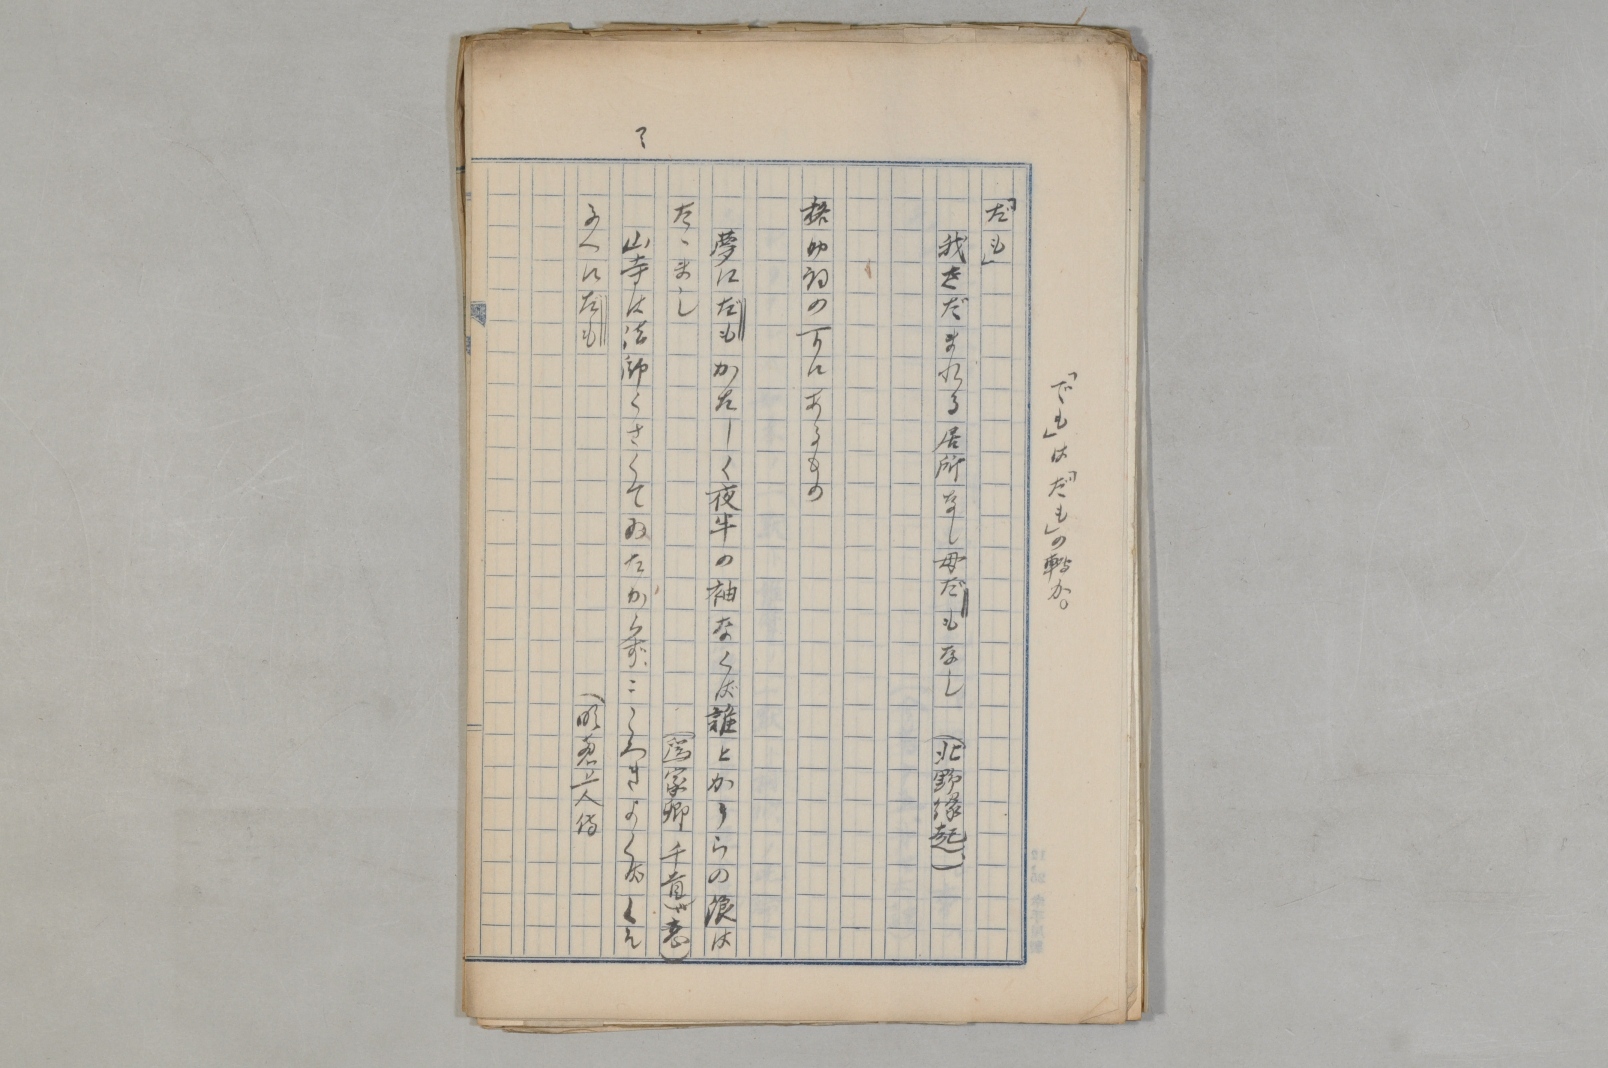 「でも」は「だも」の轉か。
「だも」
我さだまれる居所なし母だもなし (北野縁起)
格助詞の下にあるもの
夢にだもかたしく夜半の袖なくば誰とかうらの浪は
たゝまし
(為家卿千首 恋)
山寺は法師くさくてゐたからずこゝろきよくばくそ
ふくにだも
(明恵上人伝